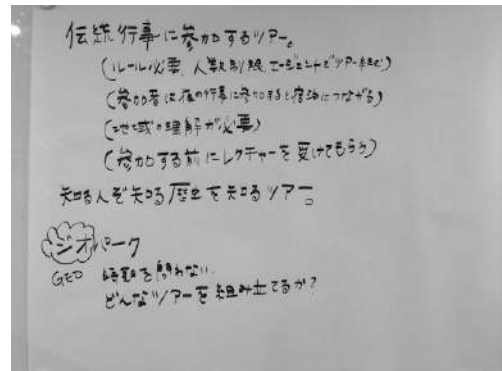 伝統行事に参加するツアー。
(ルール必要、人数制限、エージェントでツアー組む)
(参加者に夜の行事に参加すると宿泊につながる)
(地域の理解が必要)
(参加する前にレクチャーを受けてもらう)
知る人ぞ知る歴史を知るツアー。
ジオパーク
GEO 時期を問わない
どんなツアーを組み立てるか?